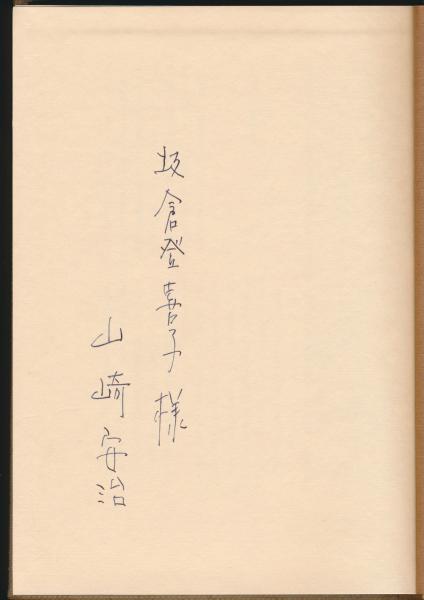 坂倉登喜子様
山崎安治